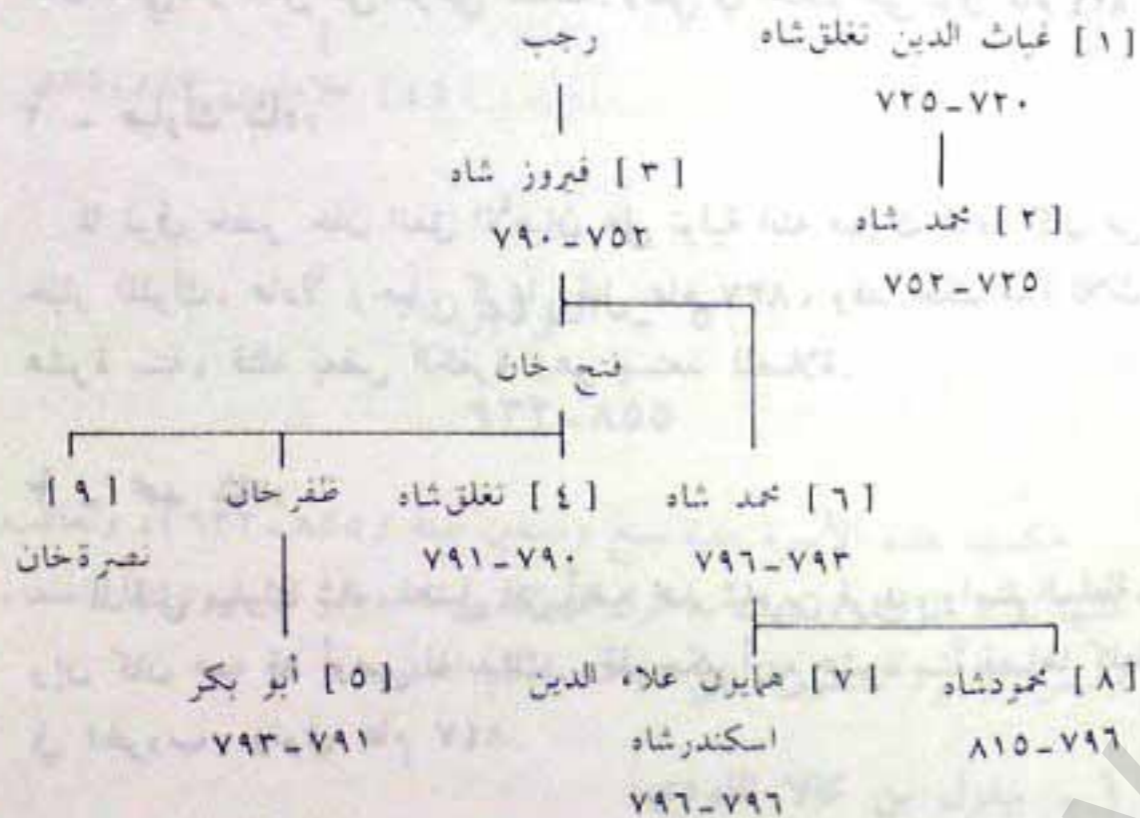 [ ١ ] غياث الدين تغلق شاه
٧٢٠-٧٢٥
رجب
[ ٢ ] محمد شاه
٧٢٥-٧٥٢
[ ٣ ] فيروز شاه
٧٥٢-٧٩٠
فتح خان
[ ٦ ] محمد شاه
٧٩٣-٧٩٦
[ ٤ ] تغلق شاه
٧٩٠-٧٩١
ظفر خان
[ ٩ ]
نصرة خان
[ ٨ ] محمود شاه
٧٩٦-٨١٥
[ ٧ ] همايون علاء الدين
اسكندر شاه
٧٩٦-٧٩٦
[ ٥ ] أبو بكر
٧٩١-٧٩٣